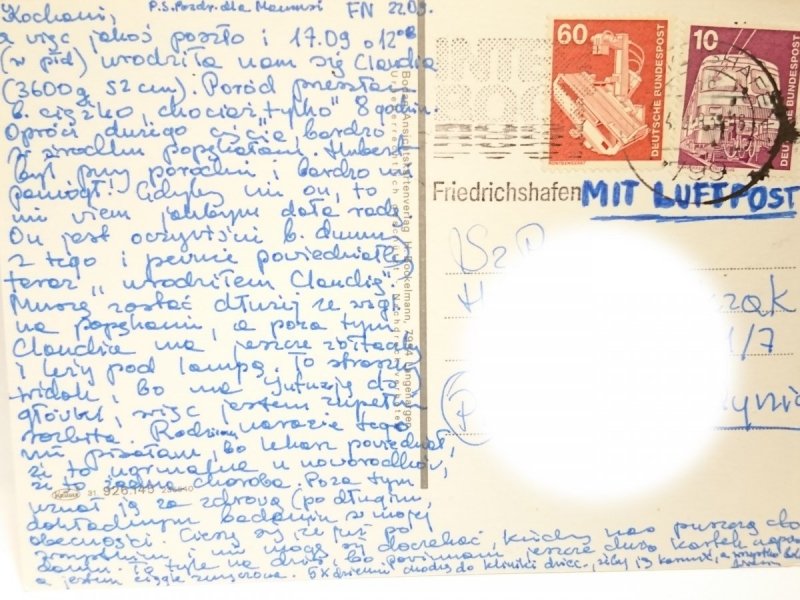 P.S. Pozdr. dla Mamusi FN 22.09.
Kochani,
a więc jakoś poszło i 17.09 o 12
(w płd) urodziła nam się Claudia
(3600 g, 52 cm). Poród przeszłam
b. ciężko, chociaż "tylko" 8 godzin.
Oprócz dużego cięcia bardzo
w środku popękałam. Hubert
był przy porodzie i bardzo mi
pomógł. Gdyby nie on, to
nie wiem jakbym dała radę
On jest oczywiście b. dumny
z tego i pewnie powiedziałby
teraz "urodziłem Claudię".
Muszę zostać dłużej ze wzgl.
na popękanie, a poza tym
Claudia ma jeszcze żółtaczkę
i leży pod lampą. To straszny
widok, bo ma
więc jestem zupełnie
rozbita. Rodzicom narazie tego
nie pisałam, bo lekarz powiedział,
że to normalne u noworodków,
że to żadna choroba. Poza tym
uznał ją za zdrową (po długim,
dokładnym badaniu w mojej
obecności. Cieszę się, że już po
wszystkim i nie mogę się doczekać, kiedy nas puszczą do
domu. To tyle na dziś, bo powinnam jeszcze dużo kartek napisać
a jestem ciągle zmęczona. 5x dziennie chodzę do kliniki dziec., żeby ją karmić, a wszystko
60
DEUTSCHE BUNDESPOST
RÖNTGENGERÄT
10
DEUTSCHE BUNDESPOST
799
Friedrichshafen
MIT LUFTPOST
Sz.P.
H
zak
1/7
P
Bodensee-Ansichtskartenverlag H. Kockelmann, 7994 Langenargen
Urheberrechtlich geschützt Nachdruck verboten
Krüger 31 926.149